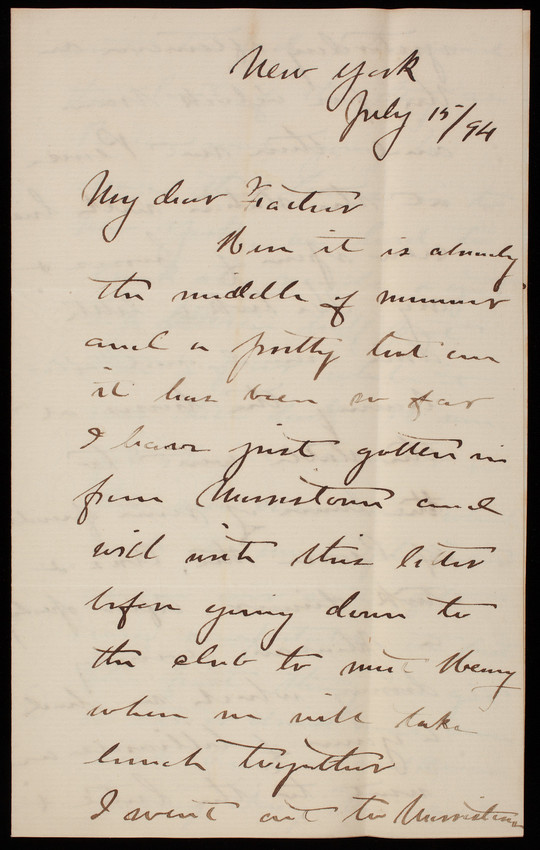 New York
July 15/94
My dear Father
Here it is already
the middle of summer
and a pretty hot one
it has been so far
I have just gotten in
from Morristown and
will write this letter
before going down to
the club to meet Henry
where we will take
lunch together
I went out to Morristown